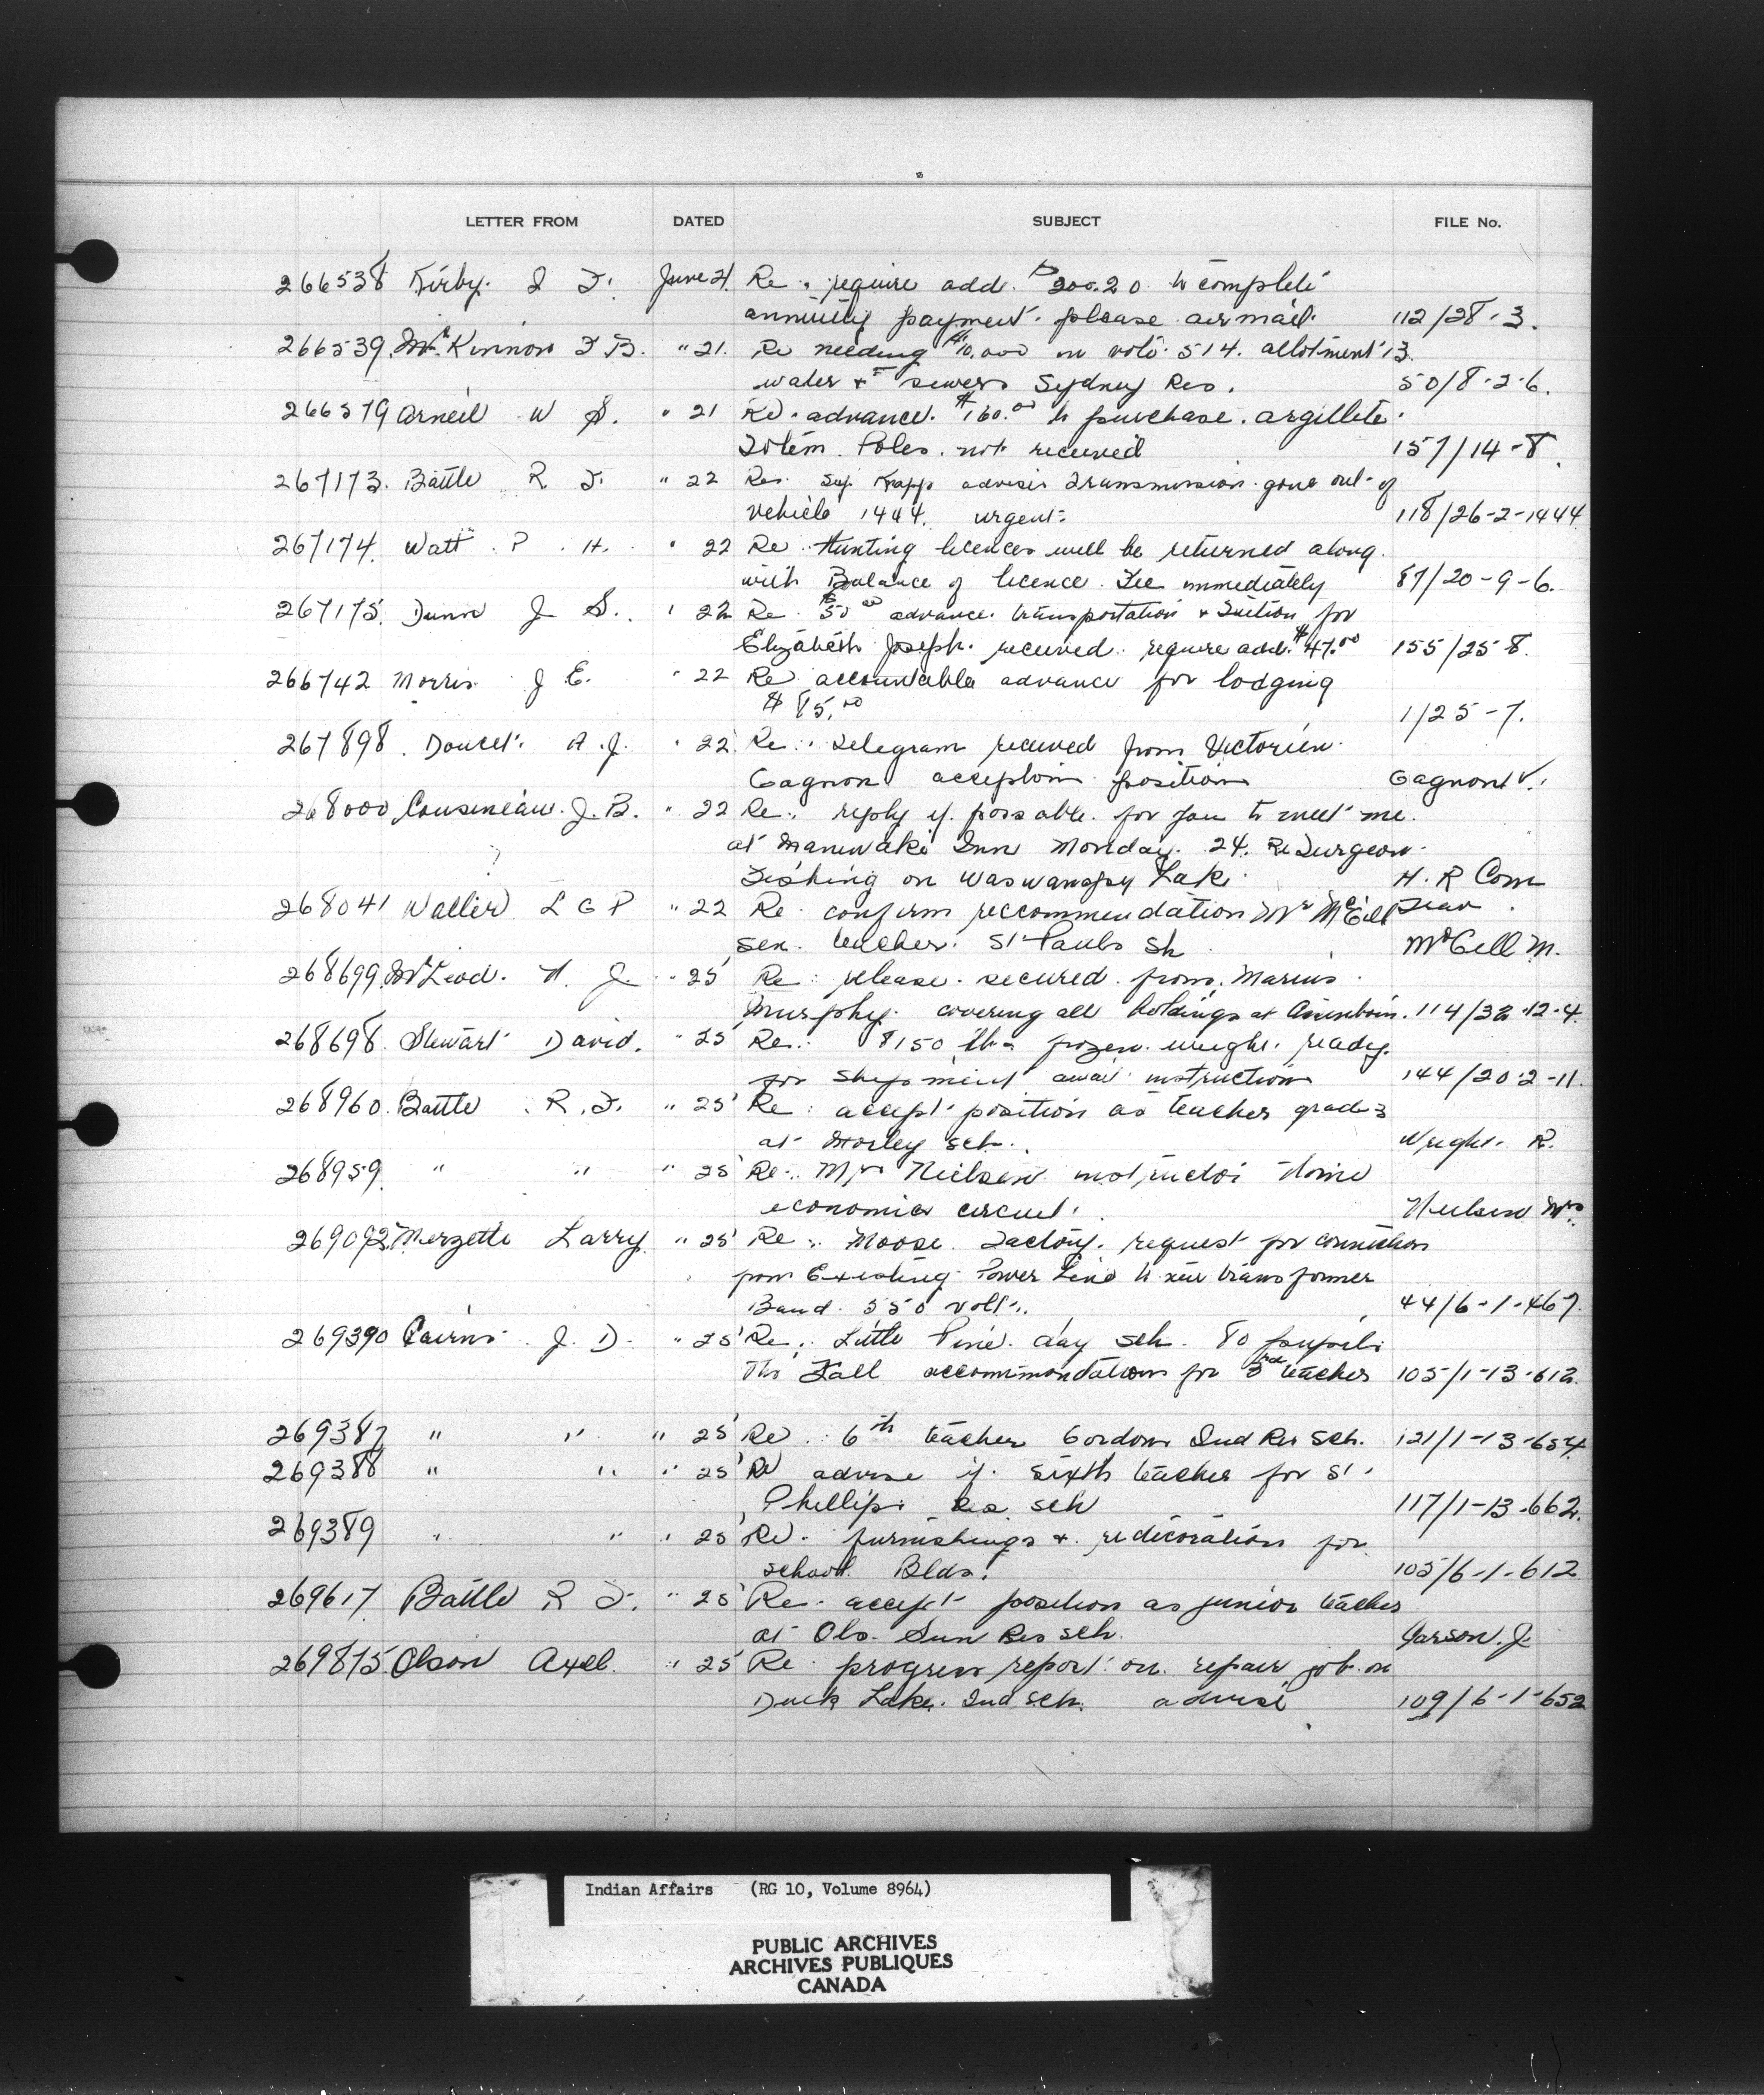 LETTER FROM DATED SUBJECT FILE No.
266538 Kirby. J. T. June 21. Re. require add. $200.20 to complete
annuity payment. please airmail. 112/28-3.
266539 McKinnon F B. " 21. Re needing $10,000 in vote 514. allotment 13.
water & sewers Sydney Res. 50/8-2-6.
266579 Arneil W S. " 21 Re. advance. $160.00 to purchase. argillite.
Totem. Poles. not received 157/14-8.
267173. Battle R. F. " 22 Re. Sup. Knapp advises Transmission gone out of
vehicle 1444. urgent. 118/26-2-1444
267174. Watt. P. H. " 22 Re. Hunting licences will be returned along
with Balance of licence. Fee immediately 87/20-9-6.
267175. Dunn J S. " 22 Re. $50.00 advance. transportation & Tuition for
Elizabeth Joseph. received. require add. $47.00 155/25-8.
266742 Morris J E. " 22 Re accountable advance for lodging
$85.00 1/25-7.
267898. Doucet. A. J. " 22 Re. telegram received from Victorien.
Gagnon accepting position Gagnon V.
268000 Cousineau. J. B. " 22 Re. reply if possable. for you to meet me.
at Maniwaki Inn Monday. 24. Re Surgeon.
?
Fishing on Waswanapy Lake. H. R Com
268041 Waller L G P " 22 Re. confirm reccommendation Mr McGill
sen. teacher. St Pauls Sh McGill M.
268699. McLeod. H. J. " 25 Re: release. secured from. Marius.
Murphy. covering all holdings at Assiniboin. 114/32-12-4.
268698. Stewart David. " 25 Re. 8150 lbs frozen weight. ready.
for shipment await instructions 144/20-2-11.
268960. Battle. R. F. " 25 Re: accept position as teacher grade 3
at Morley Sch. Wright. R.
268959. " " " 25 Re. Mrs Nielsen instructor Home
economics circuit. Nielsen Mrs
269092. Merzette Larry. " 25 Re. Moose. Factory. request for connection
from Existing Power Line to new transformer
Band. 550 volt. 44/6-1-467.
269390 Cairns. J. D. " 25 Re. Little Pine. day sch. 80 pupils
This Fall accommondation for 3rd teacher 105/1-13-612.
269387 " " " 25 Re. 6th teacher Gordons Ind Res Sch. 121/1-13-654.
269388 " " " 25 Re advise if. sixth teacher for St.
Phillips Res. sch 117/1-13-662.
269389 " " " 25 Re. furnishings & redecoration for
school. Bldg. 105/6-1-612
269617 Battle R F. " 25 Re. accept position as junior teacher
at Old. Sun Res sch. J.
269875 Olson Axel. " 25 Re. progress report on. repair job on
Duck Lake. Ind Sch. advise 109/6-1-652
Indian Affairs (RG 10, Volume 8964)
PUBLIC ARCHIVES
ARCHIVES PUBLIQUES
CANADA